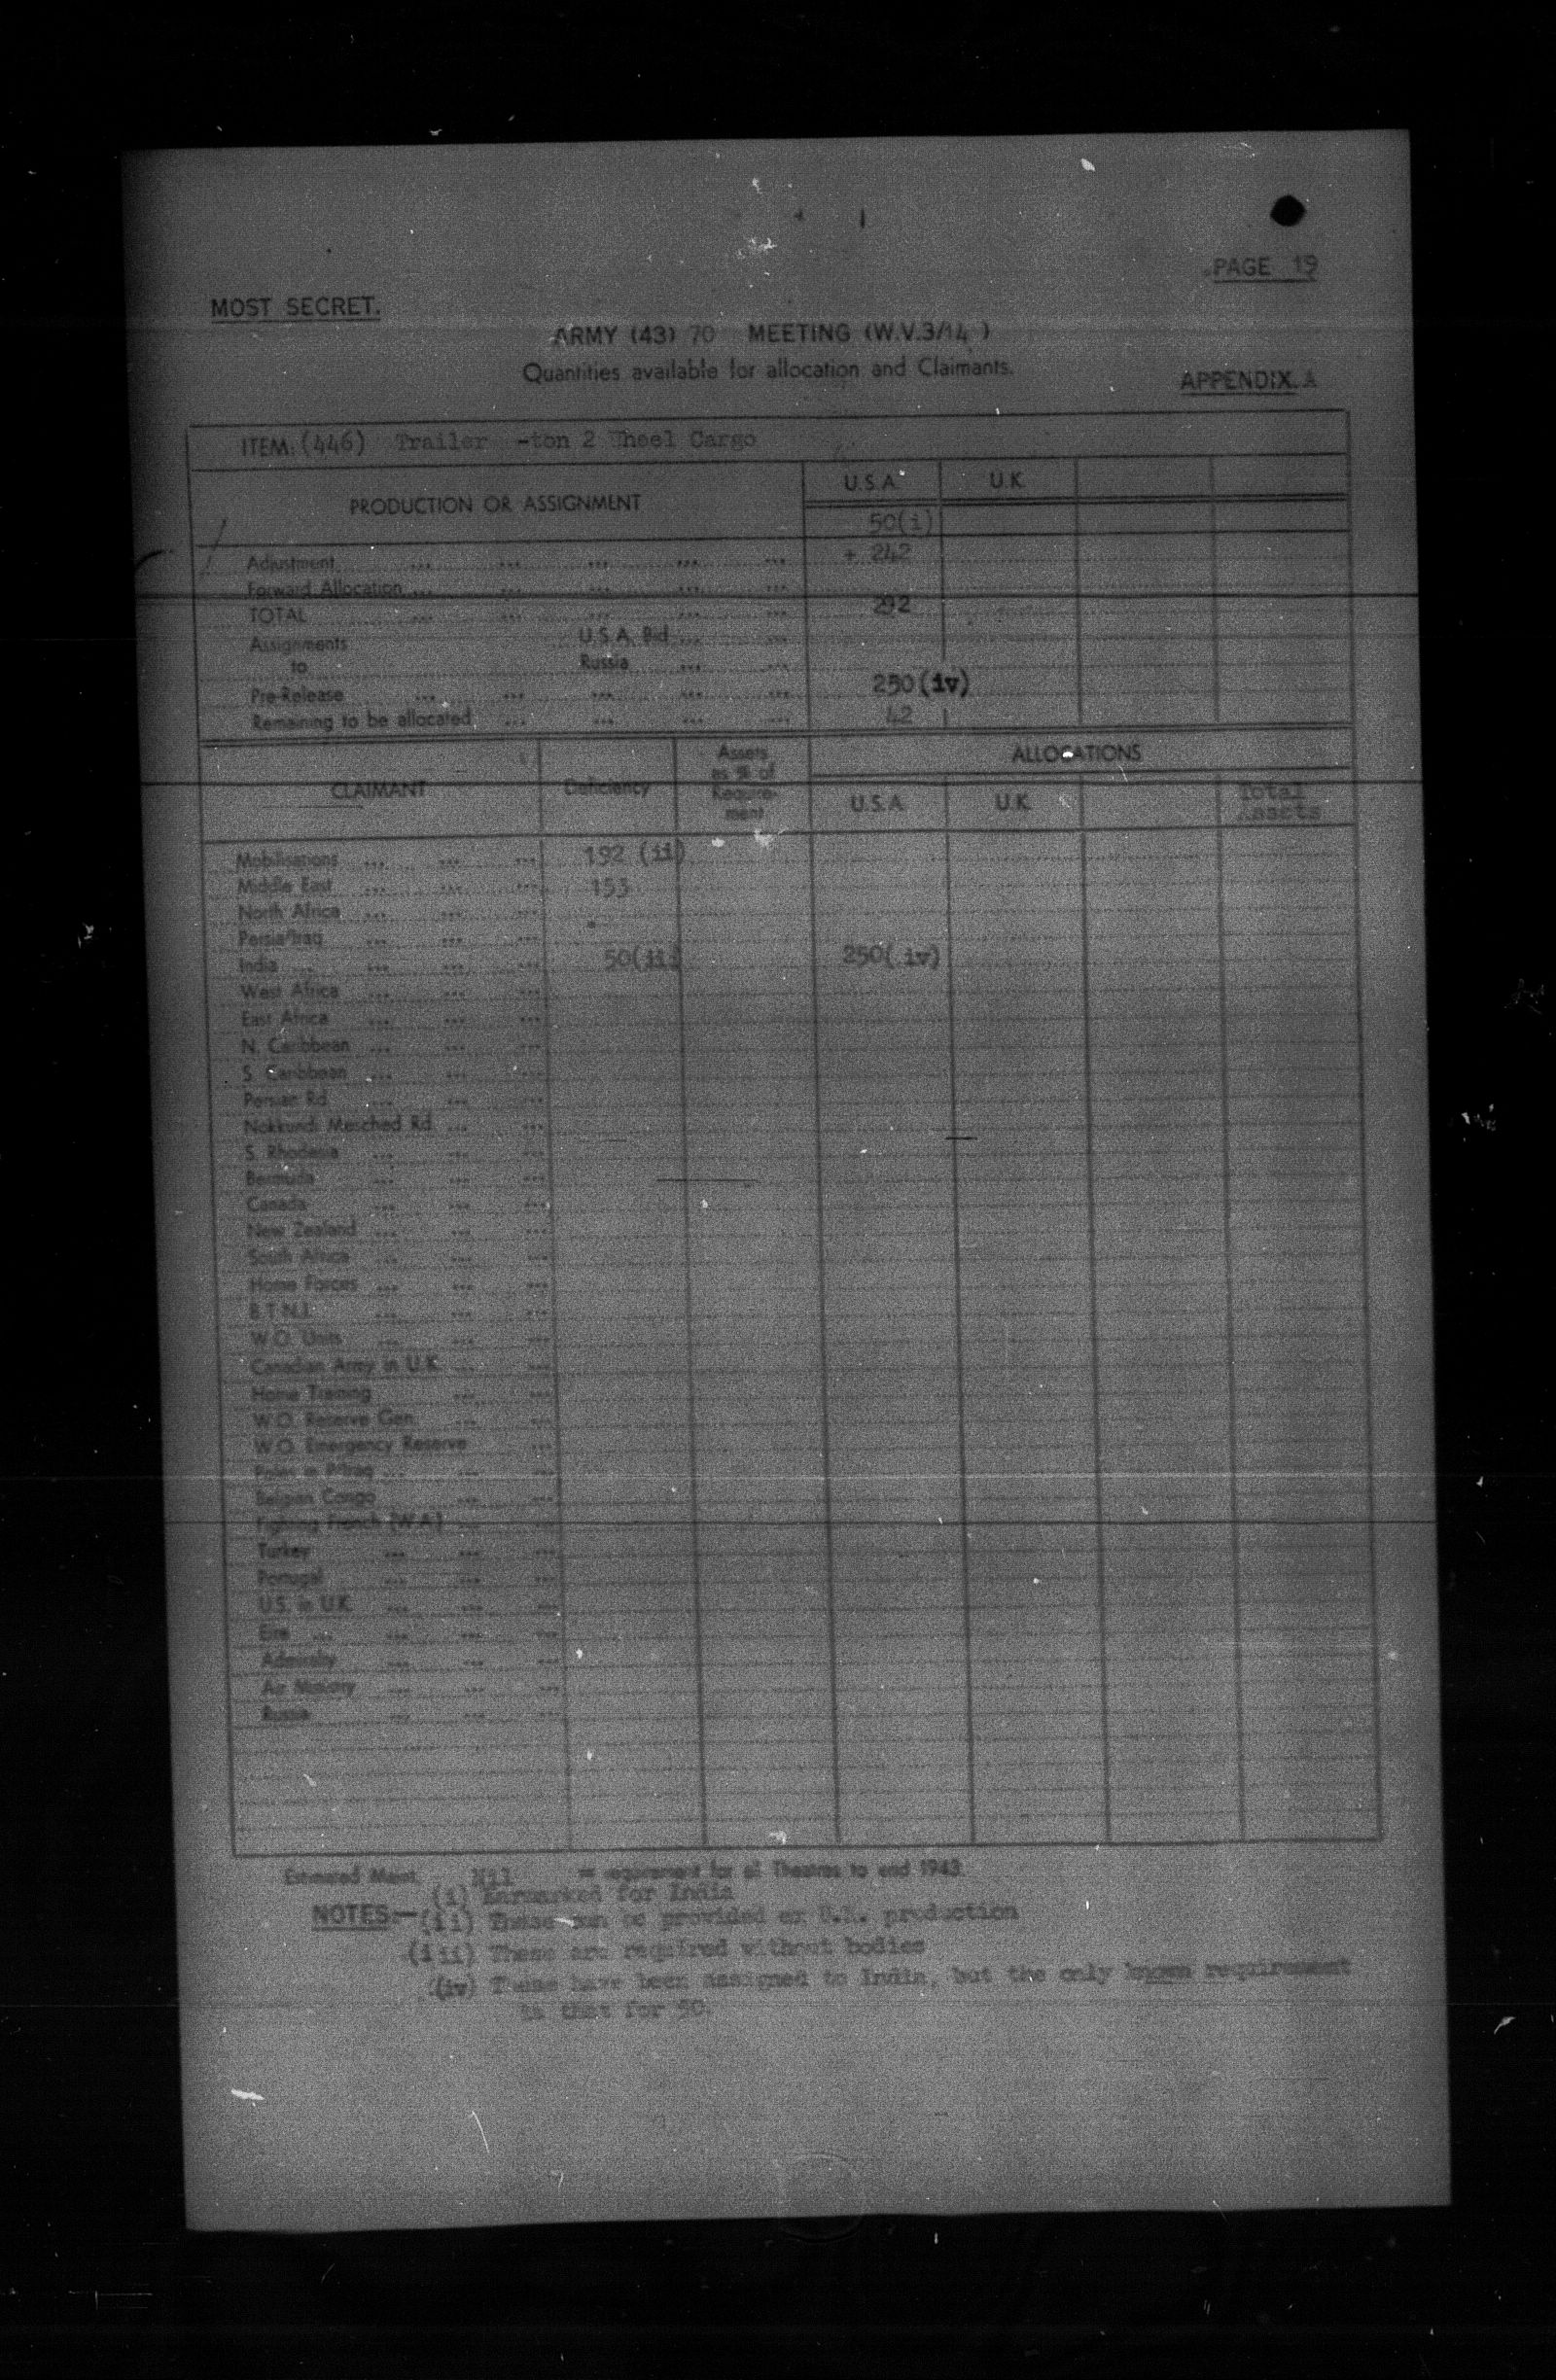 PAGE 19
MOST SECRET.
ARMY (43) 70 MEETING (W.V.3/14 )
Quantities available for allocation and Claimants.
APPENDIX. A
ITEM: (446) Trailer -ton 2 Wheel Cargo
PRODUCTION OR ASSIGNMENT U.S.A. U.K.
50(i)
Adjustment ... ... ... ... ... + 242
Forward Allocation ... ... ... ... ...
TOTAL ... ... ... ... ... 292
Assignments U.S.A. Bid ... ...
to Russia ... ...
Pre-Release ... ... ... ... ... 250(iv)
Remaining to be allocated ... ... ... ... 42
CLAIMANT Deficiency Assets as % of Requirement ALLOCATIONS
U.S.A. U.K. Total Assets
Mobilisations ... ... ... 192 (ii)
Middle East ... ... ... 153
North Africa ... ... ...
Persia/Iraq ... ... ...
India ... ... ... ... 50(iii) 250( iv)
West Africa ... ... ...
East Africa ... ... ...
N. Caribbean ... ... ...
S. Caribbean ... ... ...
Persian Rd. ... ... ...
Nokkundi Mesched Rd. ... ...
S. Rhodesia ... ... ...
Bermuda ... ... ...
Canada ... ... ...
New Zealand ... ... ...
South Africa ... ... ...
Home Forces ... ... ...
B.T.N.I. ... ... ...
W.O. Units ... ... ...
Canadian Army in U.K. ... ...
Home Training ... ...
W.O. Reserve Gen. ... ...
W.O. Emergency Reserve ...
Poles in P/Iraq ... ... ...
Belgian Congo ... ...
Fighting French (W.A.) ... ...
Turkey ... ... ...
Portugal ... ... ...
U.S. in U.K. ... ... ...
Eire ... ... ... ...
Admiralty ... ... ...
Air Ministry ... ... ...
Russia ... ... ...
Estimated Maint. Nil = requirement for all Theatres to end 1943.
NOTES:— (i) Earmarked for India
(ii) These can be provided ex U.K. production
(iii) These are required without bodies
(iv) These have been assigned to India, but the only known requirement
is that for 50.